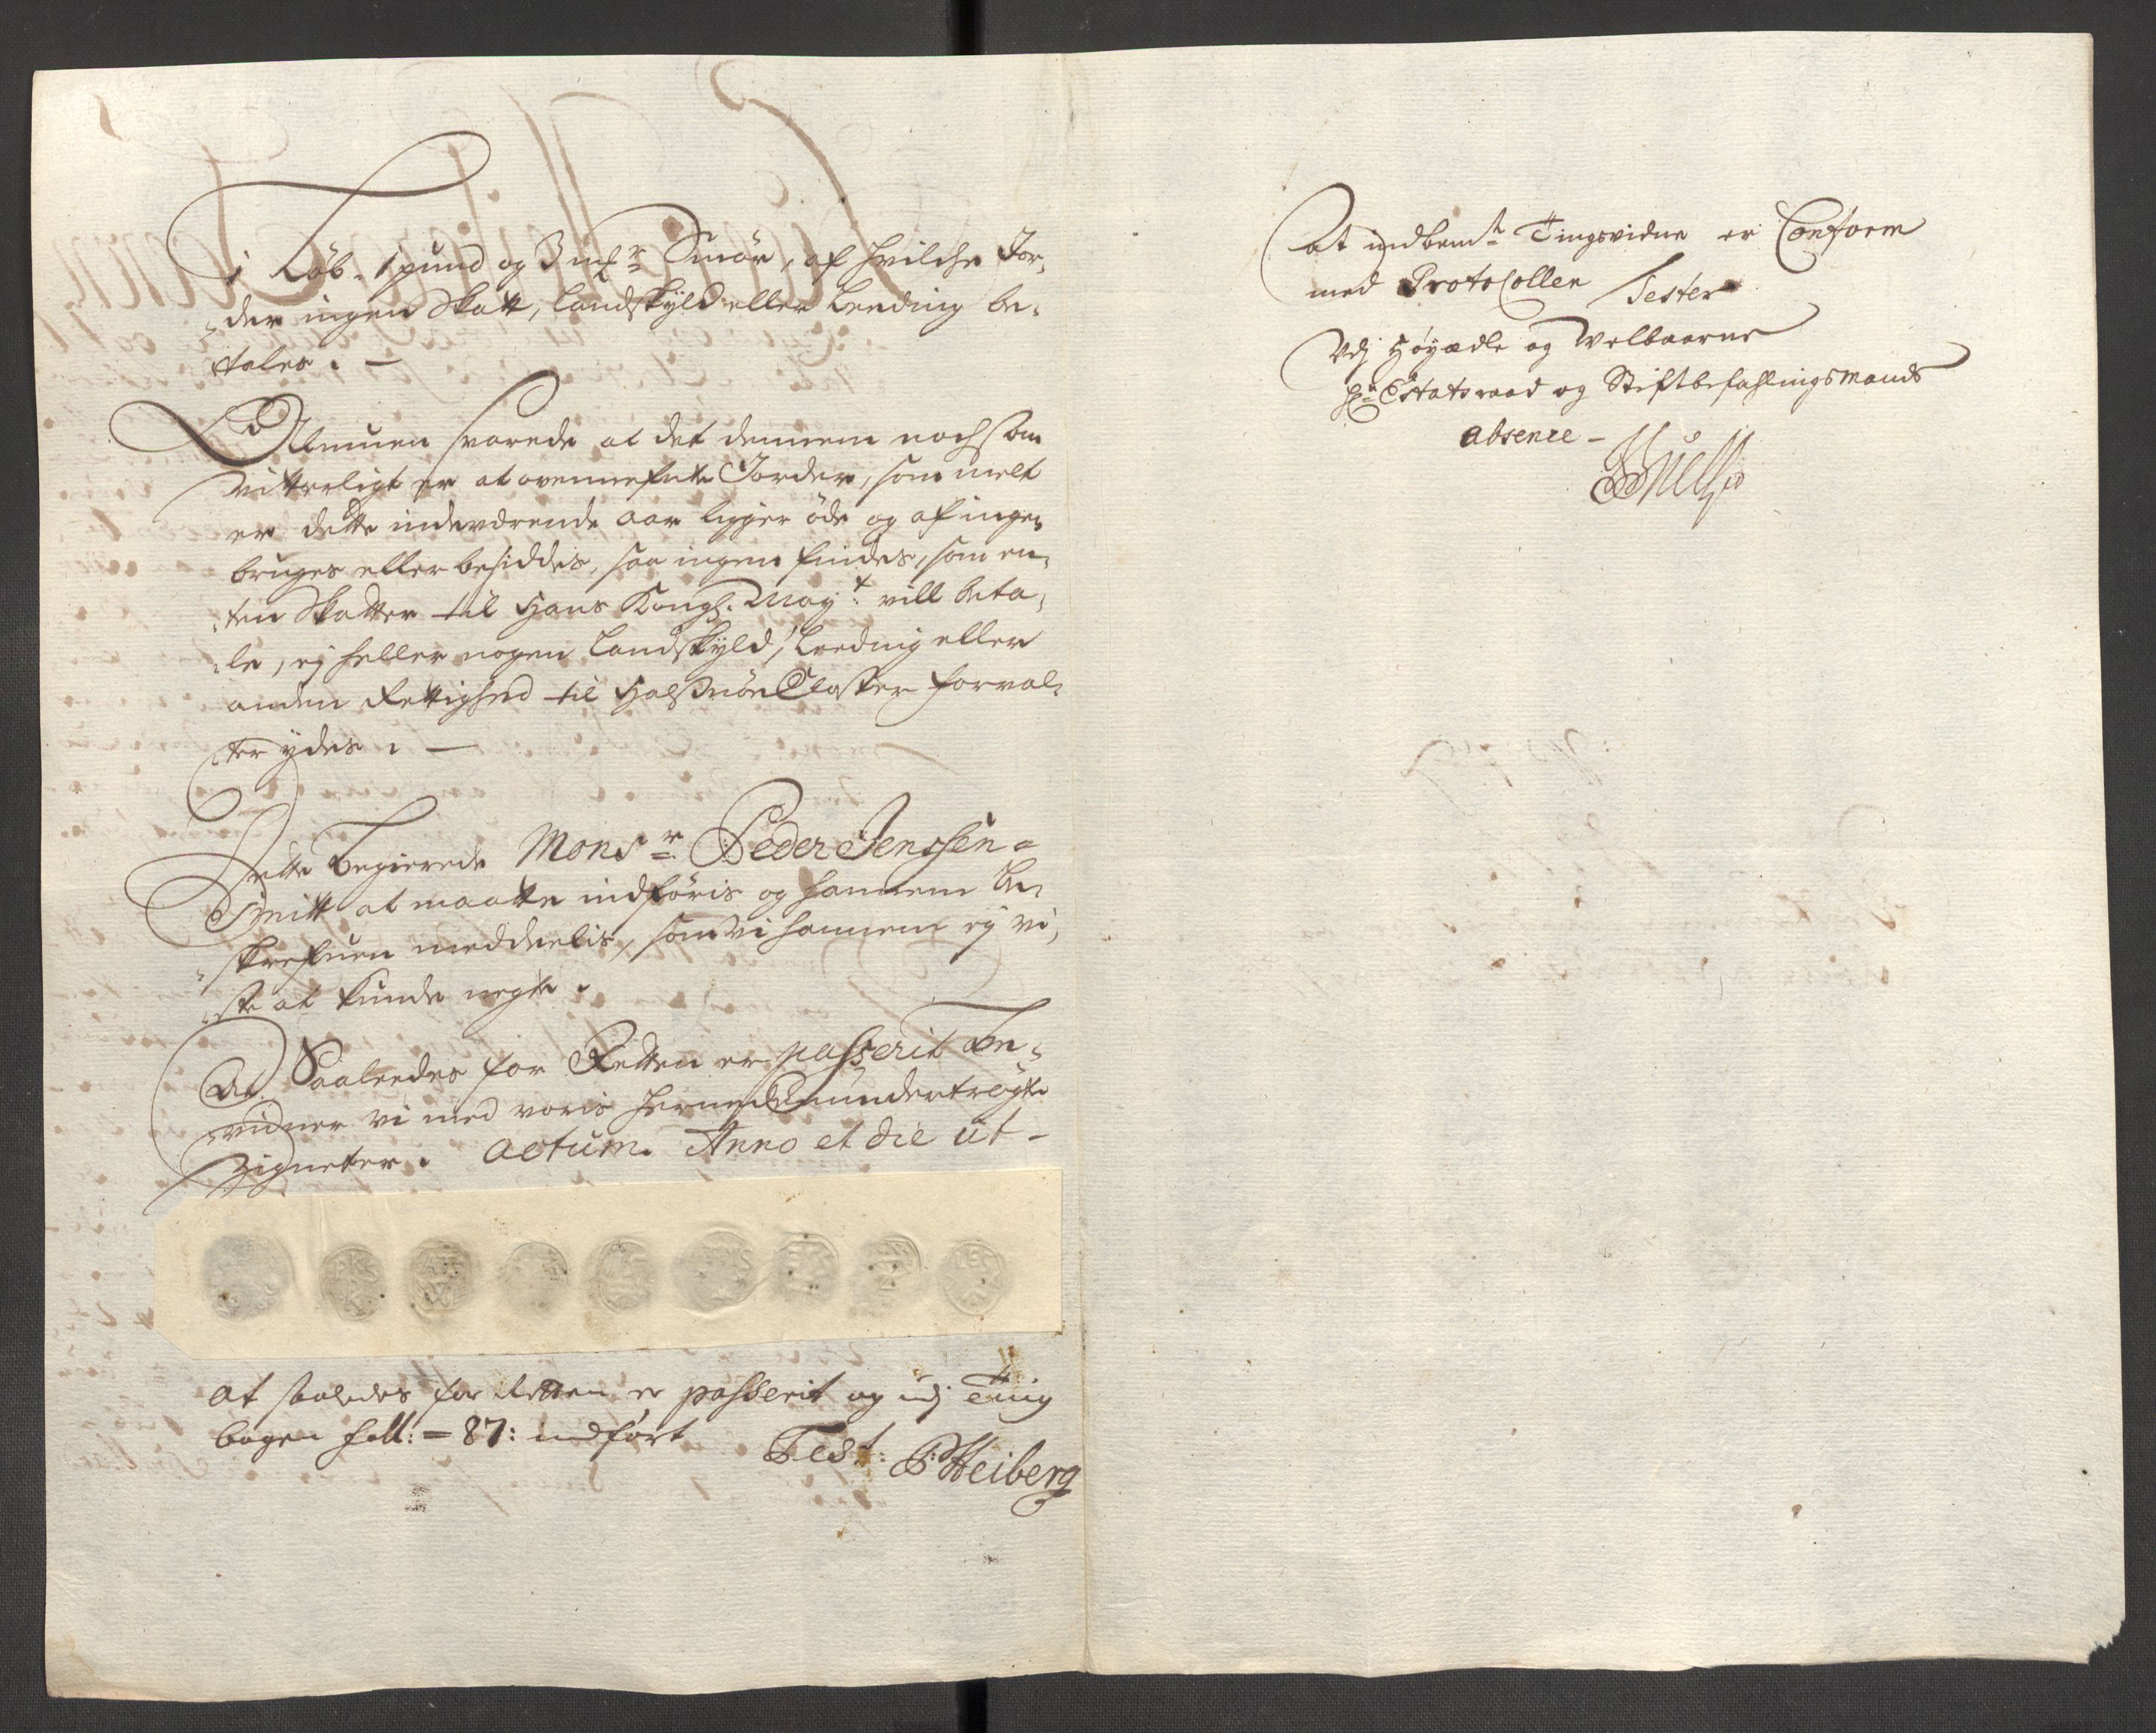 1 Løb. 1 pund og 3 mkr Smør, af hvilche Jor-
der ingen Skatt, Landskyld eller Leeding be-
tales. —
Allmuen svarede at det dennem noch som
vitterligt er at ovennefnte Jorder, som melt
er dette indeværende aar ligger øde og af ingen
bruges eller besiddes, saa ingen findes, som en-
ten Skatter til Hans Kongl. Mayt: vill beta-
le, ej heller nogen Landskyld, Leeding eller
anden Rettighed til Halsnøe Closter forval-
ter ydes. —
Dette begierede Monsr Peder Jenssen
Smitt at maatte indføris og hannem be-
skrefuen meddeelis, som vi hannem ej vi-
ste at kunde negte.
At Saaleedes for Retten er passerit be-
vidner vi med voris herneden undertrøgte
Zigneter. Actum Anno et die ut -
At saaledes for Retten er passerit og udj Ting
bogen foll: = 87: indført
Test: P: Heiberg
At indbemte Tingsvidne er Conform
med Protocollen Tester
Udj Høyædle og Welbaarne
Hr Etatsraad og Stiftbefahlingsmands
absence —